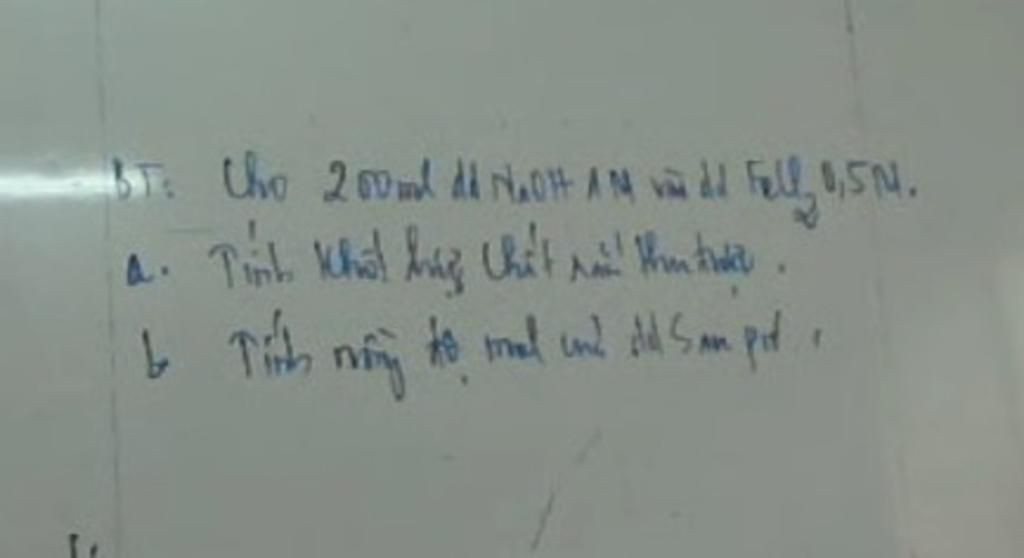 BT: Cho 200ml dd NaOH 1M vào dd FeCl2 0,5M.
a. Tính khối lượng chất rắn thu được.
b Tính nồng độ mol của dd sau pứ.